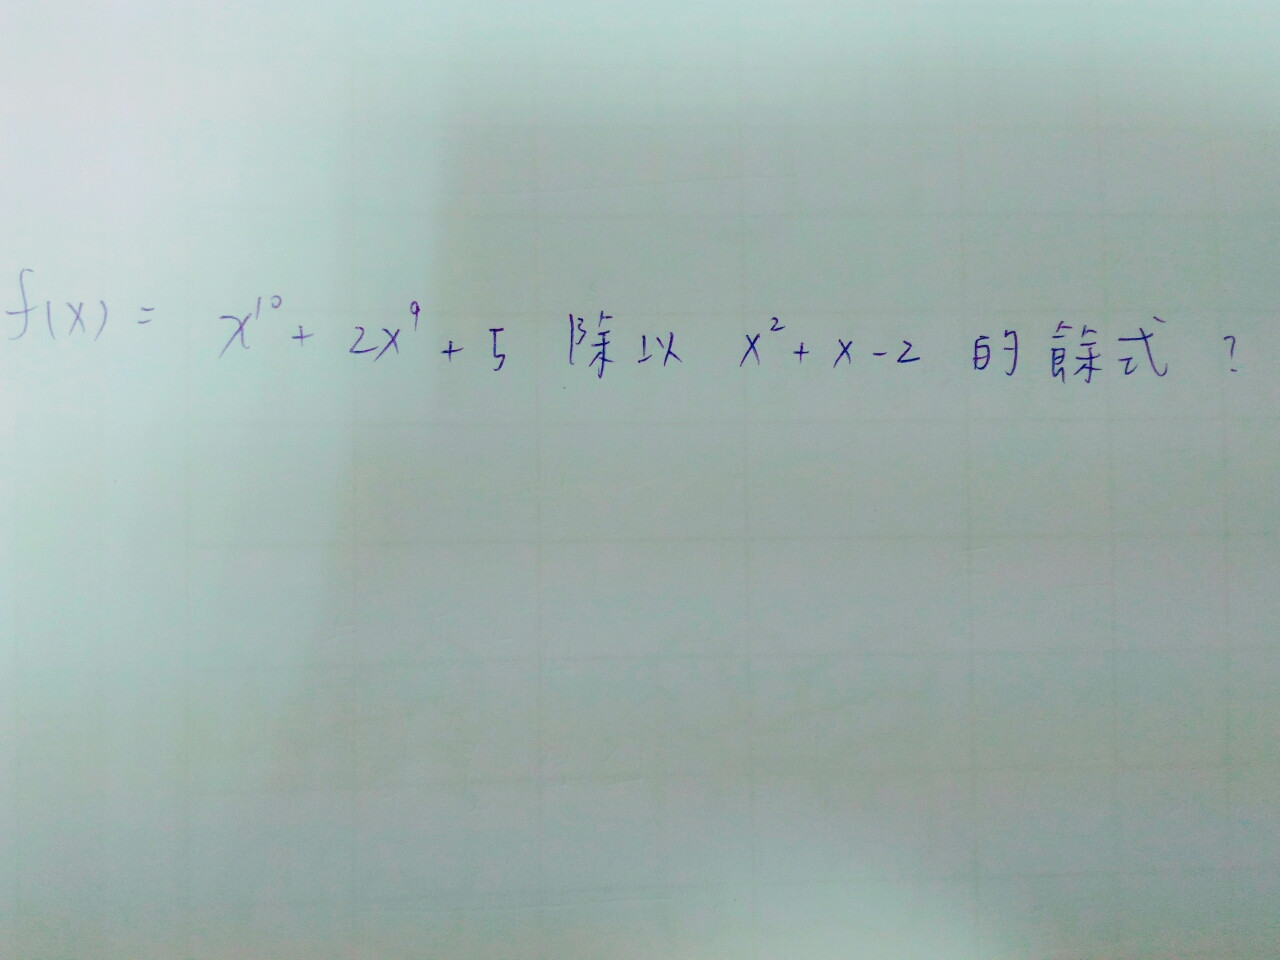 f(x) = x¹⁰ + 2x⁹ + 5 除以 x² + x - 2 的餘式 ?